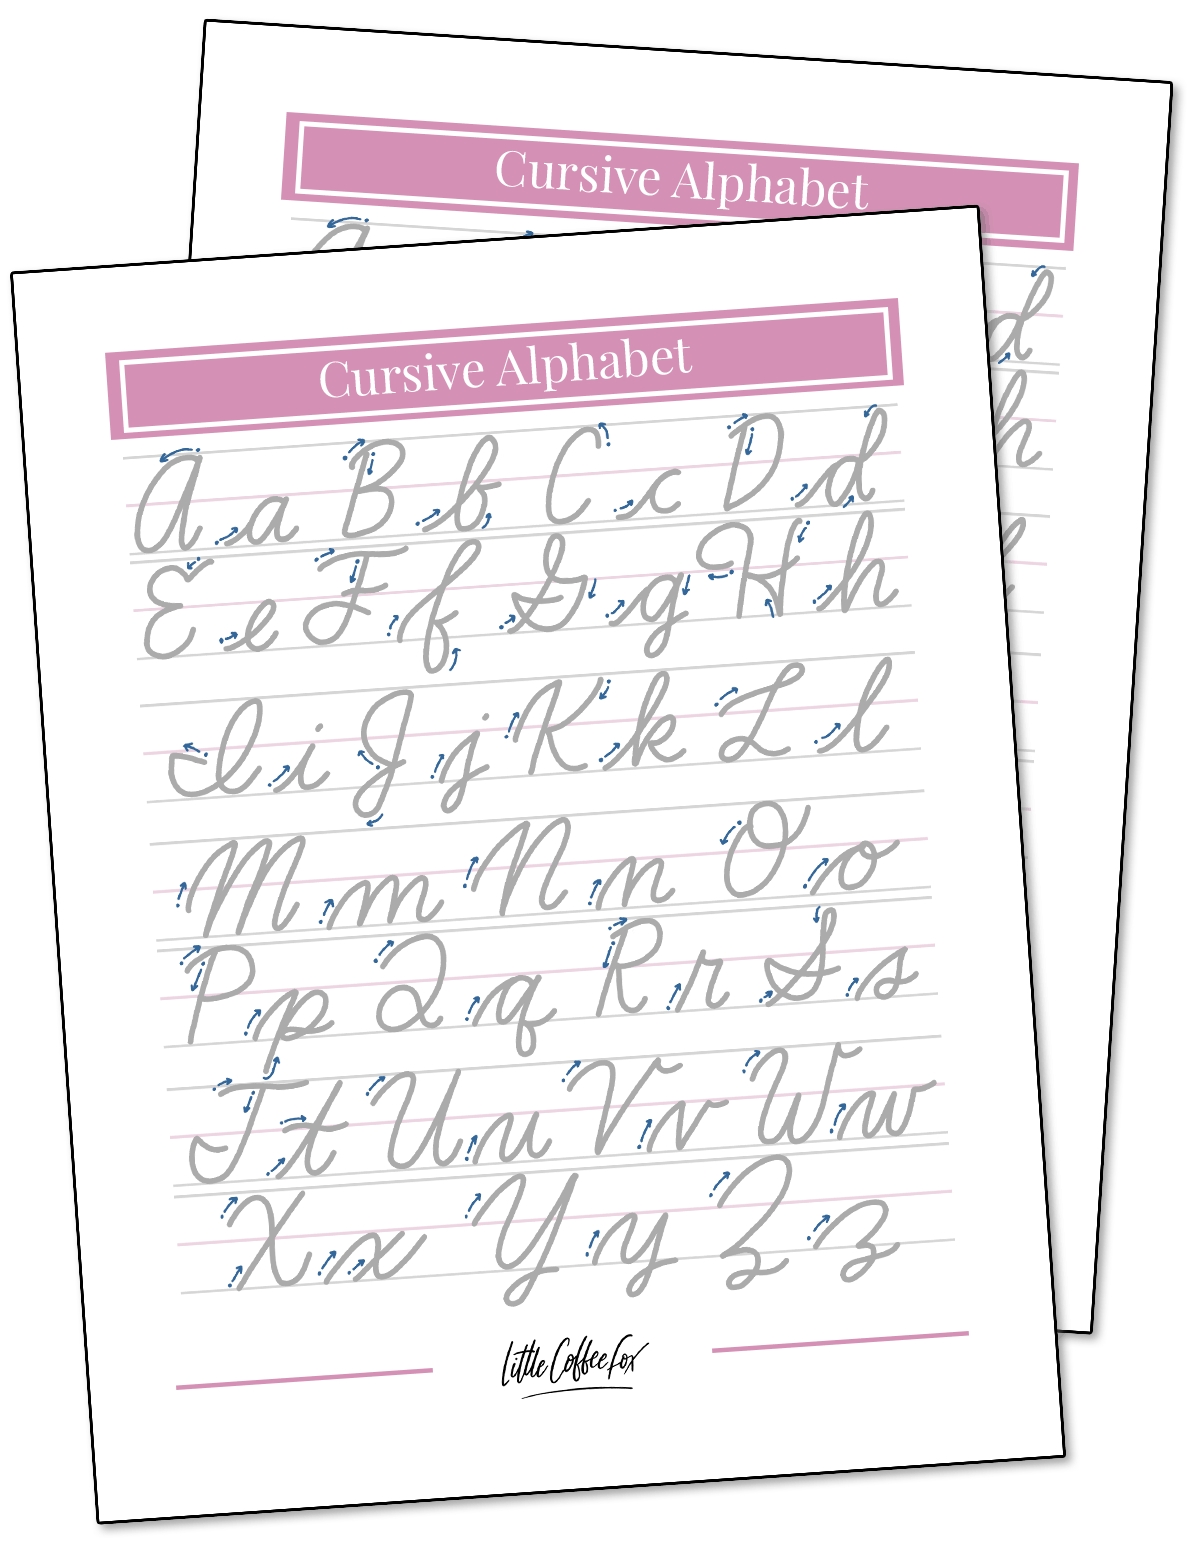 Cursive Alphabet
d
h
Cursive Alphabet
A a B b C c D d
E e F f G g H h
I i J j K k L l
M m N n O o
P p Q q R r S s
T t U u V v W w
X x Y y Z z
Little Coffee Fox